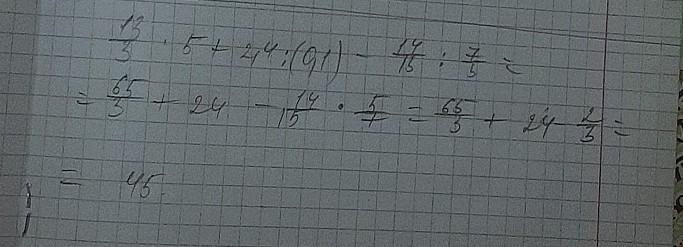 13/3 · 5 + 2,4 : (0,1) - 14/15 : 7/5 =
= 65/3 + 24 - 14/15 · 5/7 = 65/3 + 24 - 2/3 =
= 45.